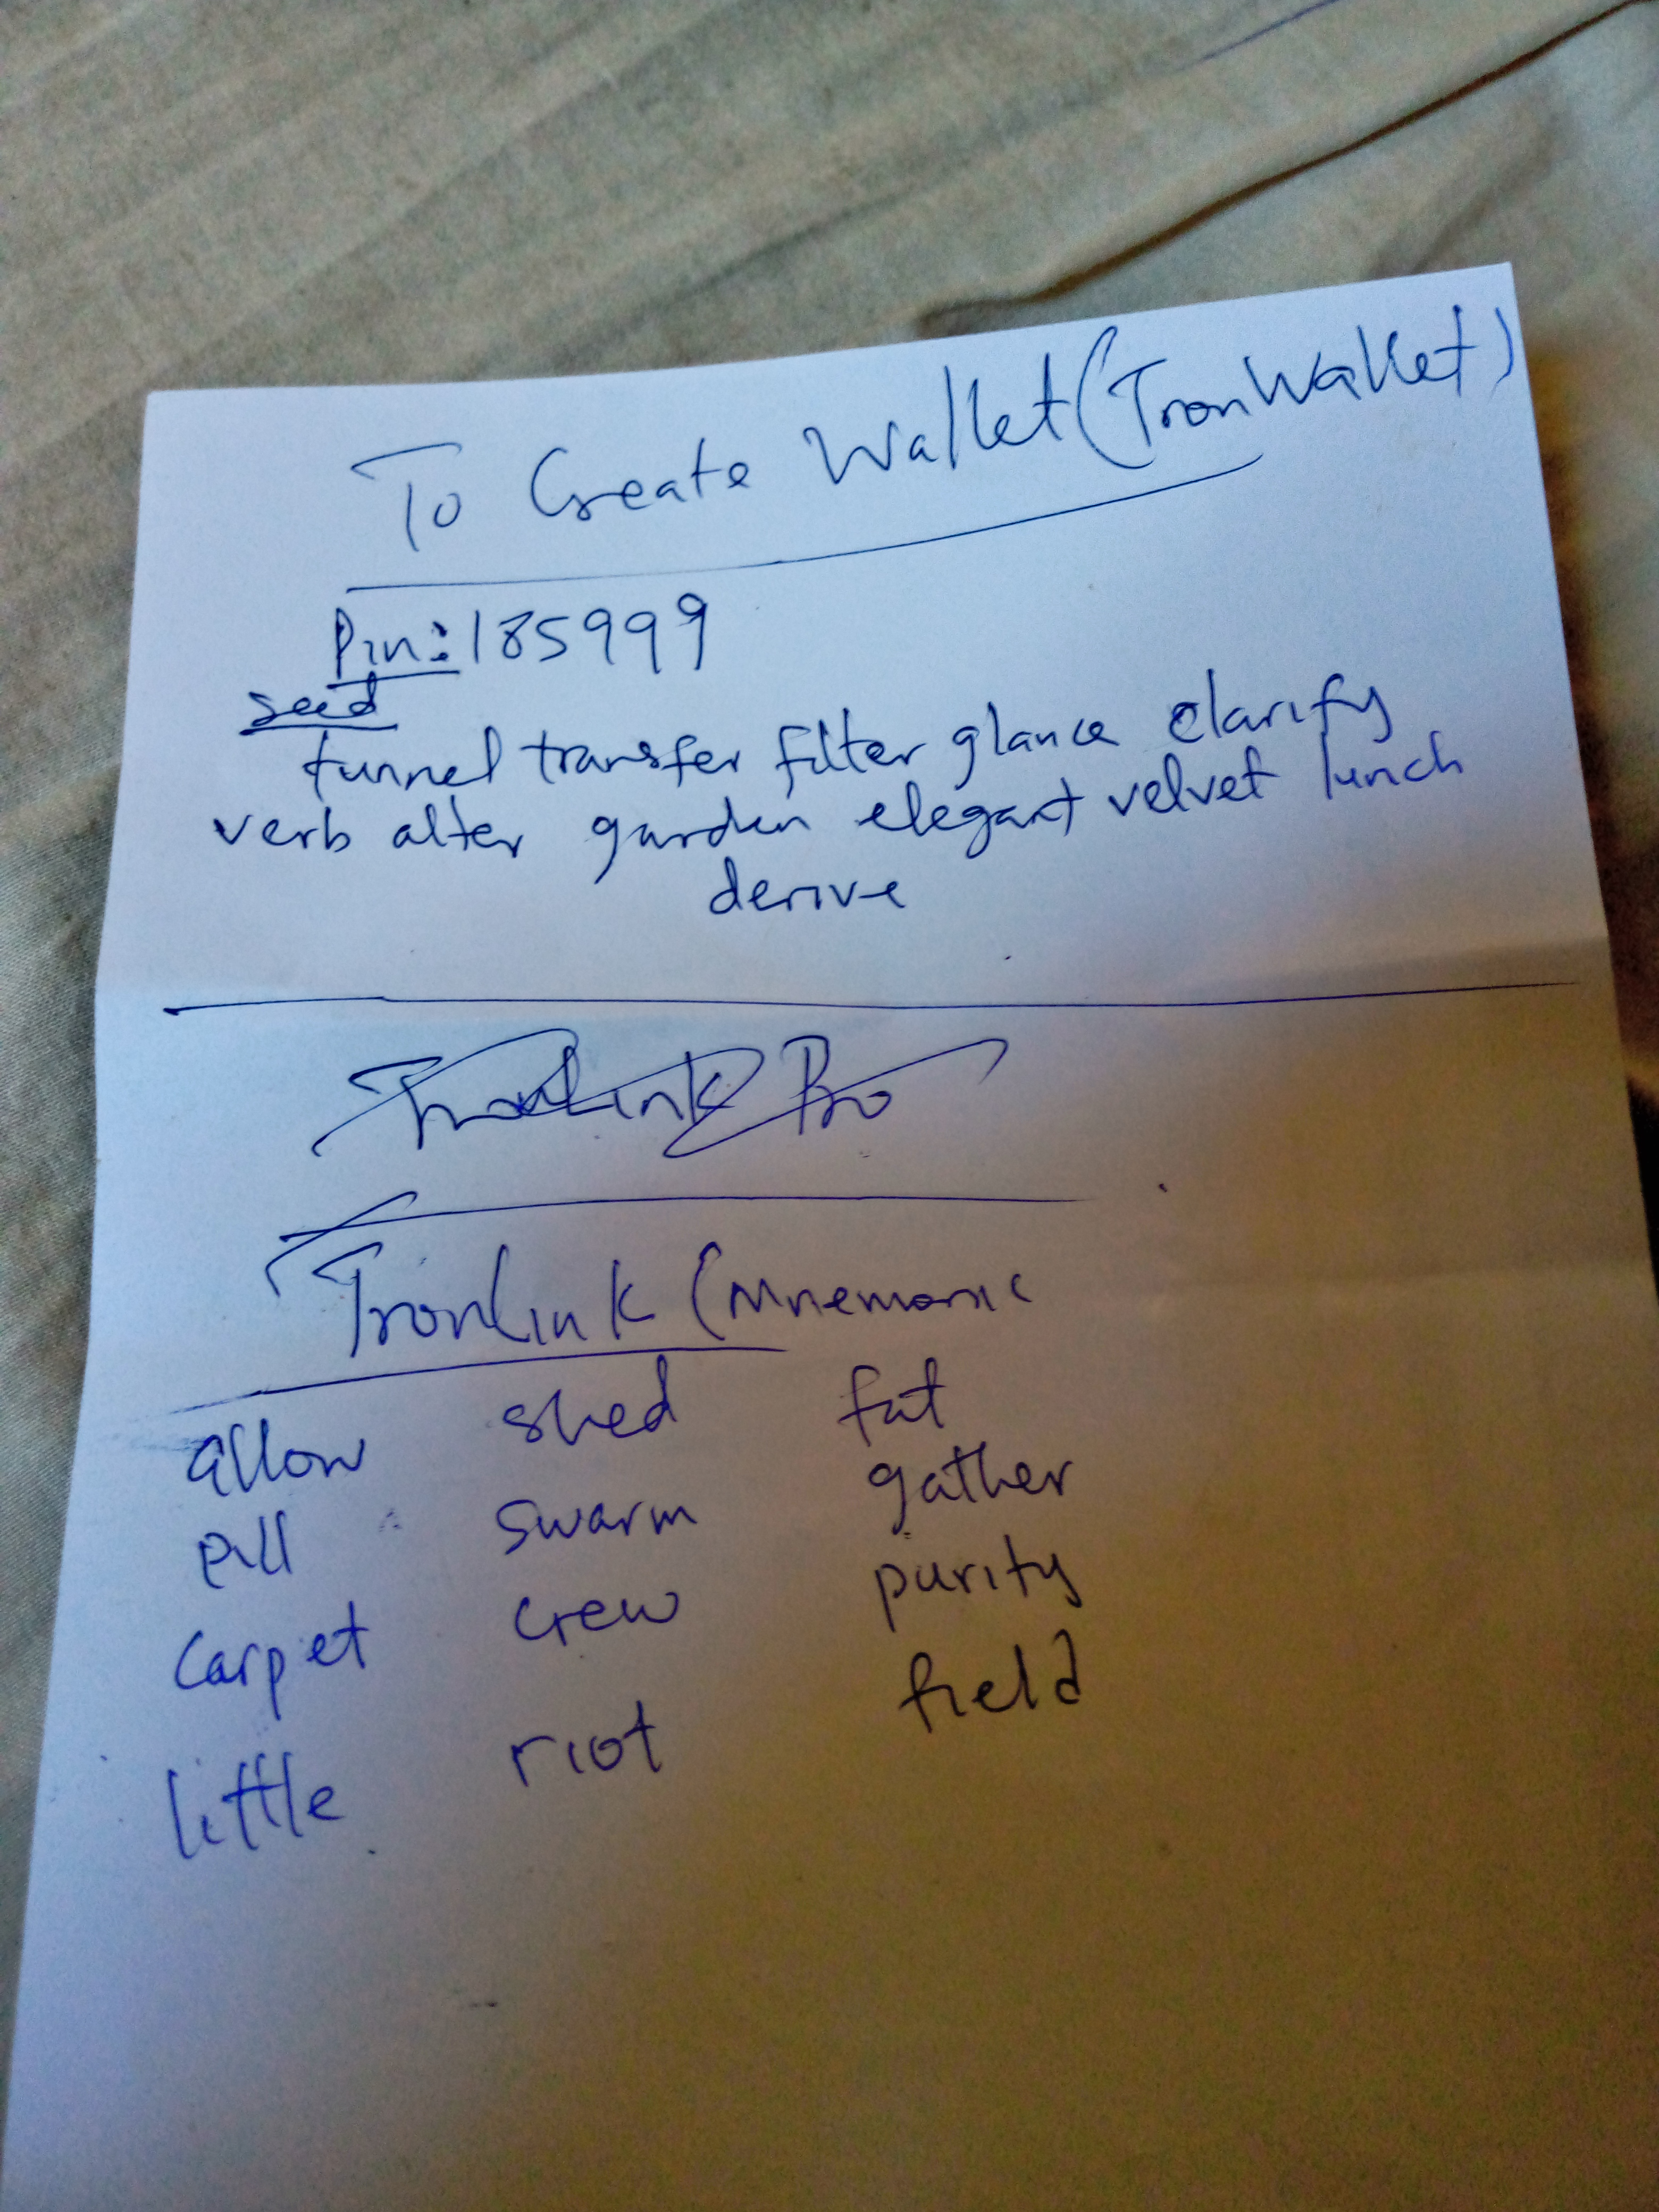 To Create Wallet (TronWallet)
Pin: 185999
seed
tunnel transfer filter glance clarify
verb alter garden elegant velvet lunch
derive
TronLink Pro
TronLink (Mnemonic
allow shed fat
pill swarm gather
carpet crew purity
little riot field